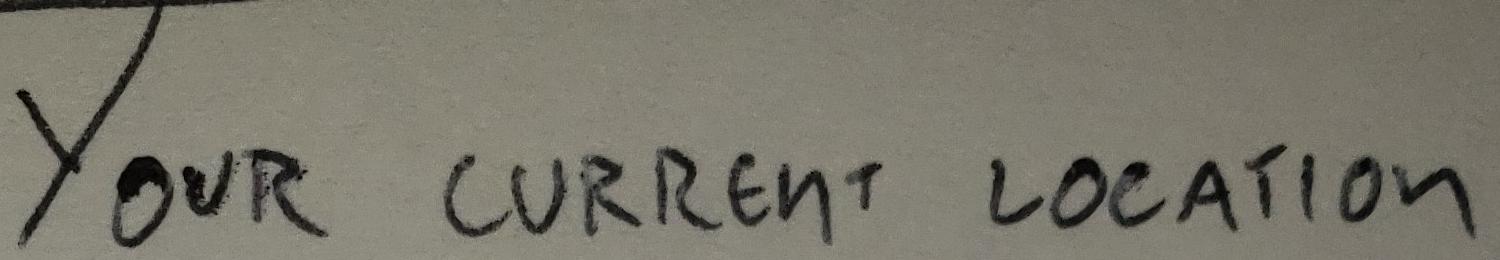 Your current location